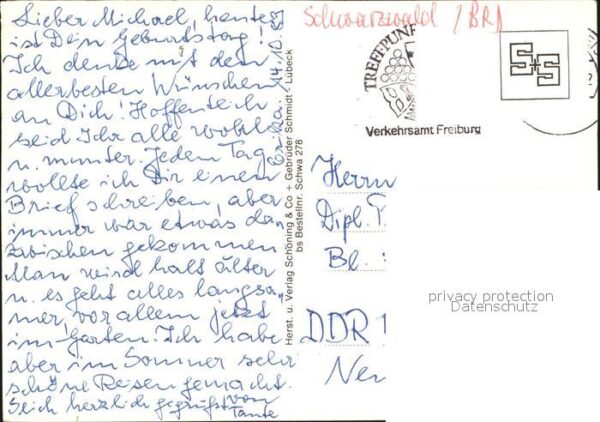 Lieber Michael, heute
ist Dein Geburtstag!
Ich denke mit den
allerbesten Wünschen
an Dich! Hoffentlich
seid Ihr alle wohl
u. munter. Jeden Tag
wollte ich Dir einen
Brief schreiben, aber
immer war etwas da
zwischen gekommen
Man wird halt älter
u. es geht alles langsa
mer, vor allem jetzt
im Garten. Ich habe
aber im Sommer sehr
schöne Reisen gemacht.
Seich herzlich gegrüßt von
Tante
14.10.
Herst. u. Verlag Schöning & Co + Gebrüder Schmidt - Lübeck
bs Bestellnr. Schwa 278
Schwarzwald / BRD
TREFFPUNK
S+S
Verkehrsamt Freiburg
Herrn
Dipl.
Bl.
DDR 1
Ner
privacy protection
Datenschutz